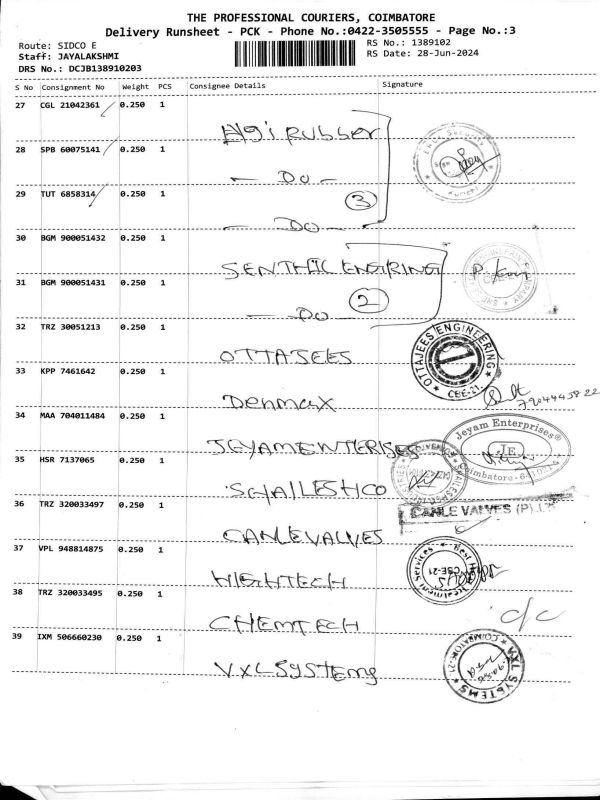 THE PROFESSIONAL COURIERS, COIMBATORE
Delivery Runsheet - PCK - Phone No.:0422-3505555 - Page No.:3
Route: SIDCO E
RS No.: 1389102
Staff: JAYALAKSHMI
RS Date: 28-Jun-2024
DRS No.: DCJB138910203
S No Consignment No Weight PCS Consignee Details Signature
27 CGL 21042361 0.250 1
Elgi Rubber
28 SPB 60075141 0.250 1
- Do -
29 TUT 6858314 0.250 1
3
- Do -
30 BGM 900051432 0.250 1
SENTHIL ENGRING
31 BGM 900051431 0.250 1
2
- Do
32 TRZ 30051213 0.250 1
OTTAJEES
OTTAJEES ENGINEERING
CBE-21.
33 KPP 7461642 0.250 1
Denmax
34 MAA 704011484 0.250 1
JEYAMENTERISES
Jeyam Enterprises®
JE
35 HSR 7137065 0.250 1
SCHAILESHCO
36 TRZ 320033497 0.250 1
CANLE VALVES (P) L
CANLEVALVES
37 VPL 948814875 0.250 1
HIGHTECH
Treatment Services
CBE-21
38 TRZ 320033495 0.250 1
c/c
CHEMTECH
39 IXM 506660230 0.250 1
VXL SYSTEMS
VXL SYSTEMS
COIMBATORE-21